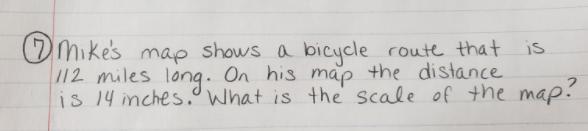 7 Mike's map shows a bicycle route that is
112 miles long. On his map the distance
is 14 inches. What is the scale of the map?